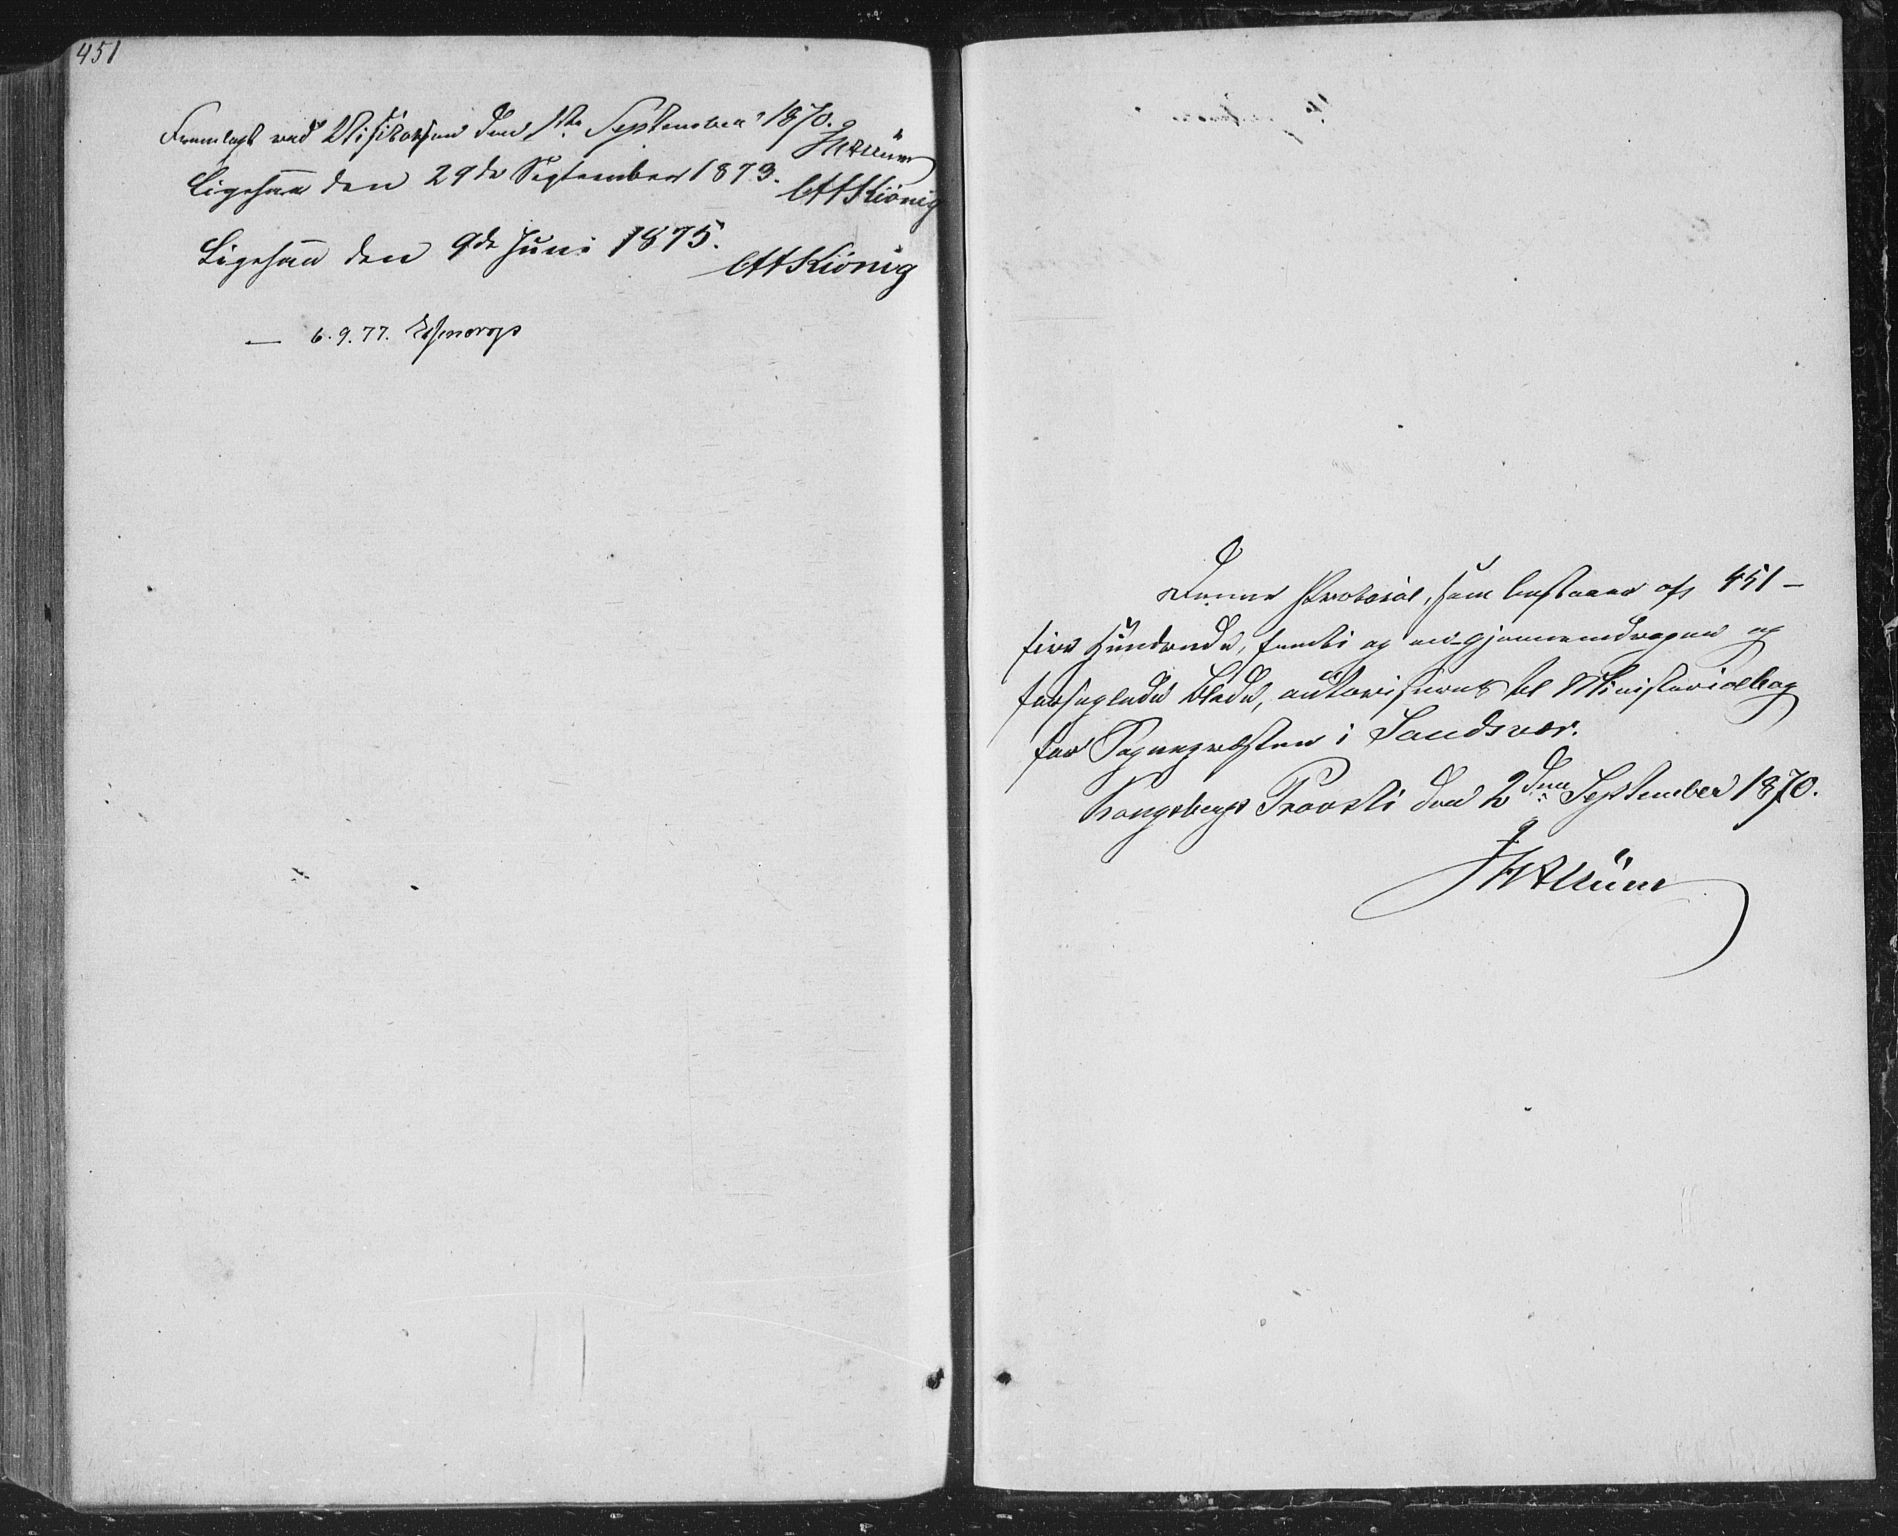 451
Fremlagt ved Visitatsen den 1ste September 1870.
Ligesaa den 29de September 1873. Kiönig
Ligesaa den 9de Juni 1875.
Kiönig
— 6.9.77.
Denne Protocol, som bestaaer af 451 –
fire Hundrede, femti og en – gjennemdragne og
forseglede Blade, autoriseres til Ministerialbog
for Sognepræsten i Sandsvær.
Kongsbergs Provsti den 2den September 1870.